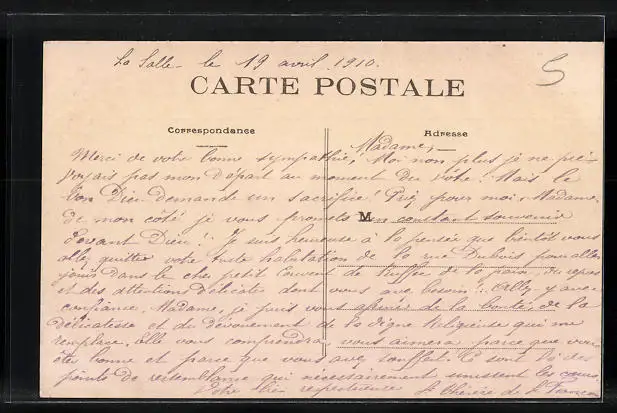 La Salle - le 19 avril 1910.
5
CARTE POSTALE
Correspondance
Adresse
Madame, -
Merci de votre bonne sympathie! Moi non plus je ne pré-
voyais pas mon départ au moment du vôtre! Mais le
bon Dieu demande un sacrifice! Priez pour moi, Madame,
de mon côté je vous promets un constant souvenir
M
devant Dieu! Je suis heureuse à la pensée que bientôt vous
allez quitter votre triste habitation de la rue Dubois pour aller
jouir dans le cher petit Couvent de de la paix du repos
et des attentions délicates dont vous avez besoin! Allez-y avec
confiance, Madame, je puis vous de la bonté, de la
délicatesse et du dévouement de la digne Religieuse qui me
remplace, elle vous comprendra, vous aimera parce que vous
êtes bonne et parce que vous avez souffert. Ce sont là des
points de ressemblance qui nécessairement unissent les cœurs
Votre bien respectueuse Sr Thérèse de St